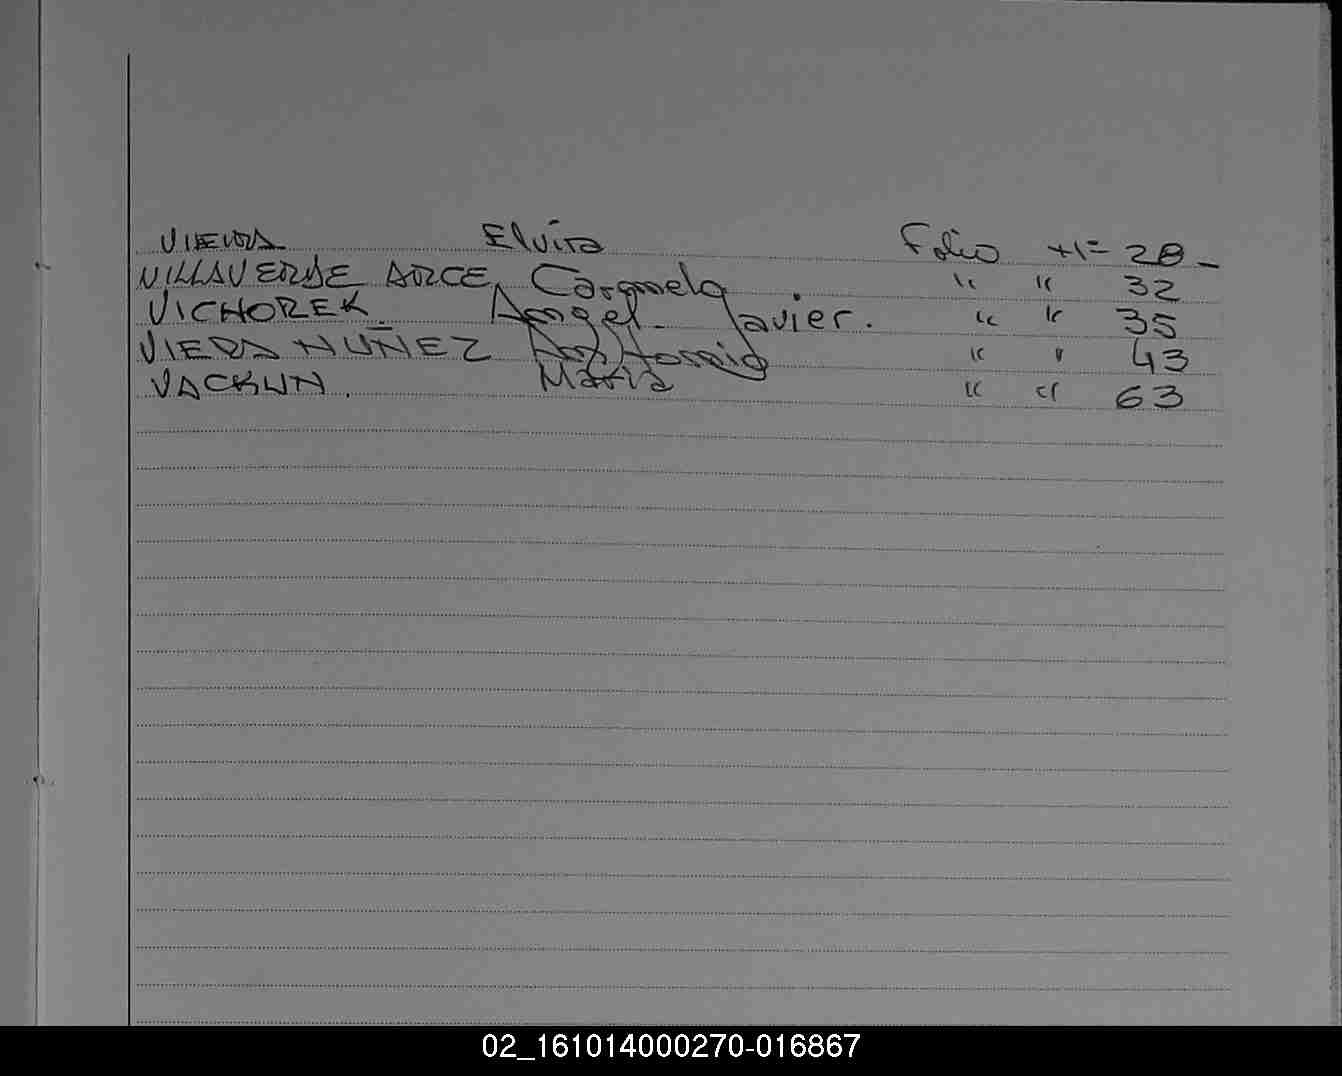 VIEIRA Elvira Folio Nº 28 -
VILLAVERDE ARCE, Carmela " " 32
VICHOREK. Angel Javier. " " 35
VIERA NUÑEZ Antonio " " 43
VACKUN. Maria " " 63
02_161014000270-016867